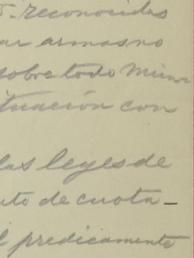 reconocidas
ar armas no
sobre todo
ituación con
las leyes de
to de cuota_
el predicamento